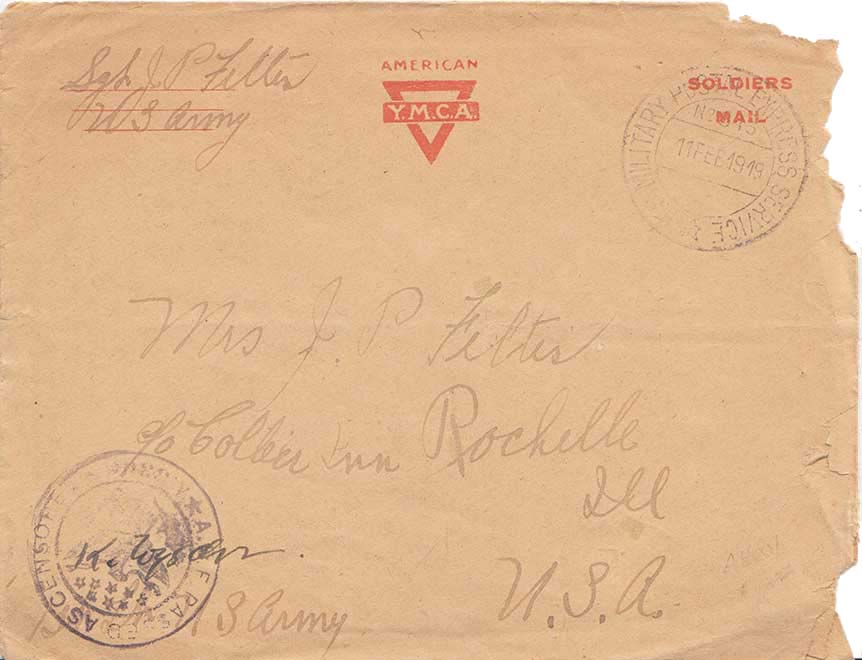 Sgt. J. P. Feltis
U S Army
AMERICAN
Y.M.C.A.
SOLDIERS
MAIL
MILITARY POSTAL EXPRESS SERVICE
11 FEB 1919
Mrs J. P Feltis
c/o Collier Inn Rochelle
Ill
U. S. A.
A.E.F. PASSED AS CENSORED
U S Army